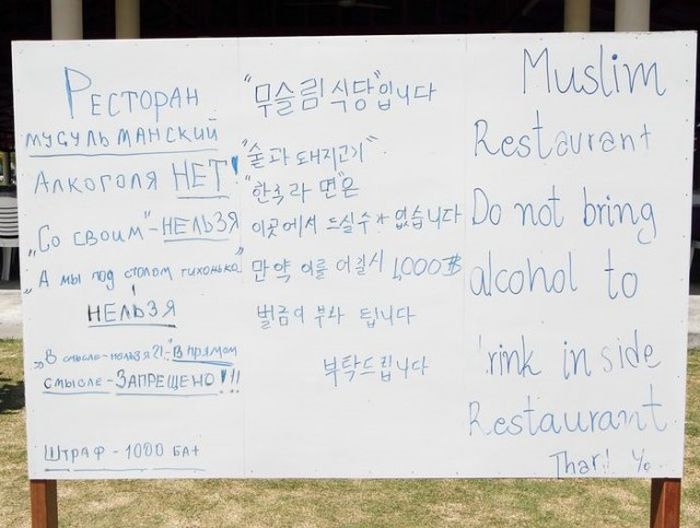 Ресторан
мусульманский
Алкоголя НЕТ!
„Со своим" - НЕЛЬЗЯ
„А мы под столом тихонько"
НЕЛЬЗЯ
„В смысле - нельзя?! - В прямом
смысле - ЗАПРЕЩЕНО!!!
Штраф - 1000 бат
"무슬림 식당"입니다
"술과 돼지고기"
"한국라면"은
이곳에서 드실수 없습니다
만약 이를 어길시 1,000฿
벌금이 부과 됩니다
부탁드립니다
Muslim
Restaurant
Do not bring
alcohol to
rink inside
Restaurant